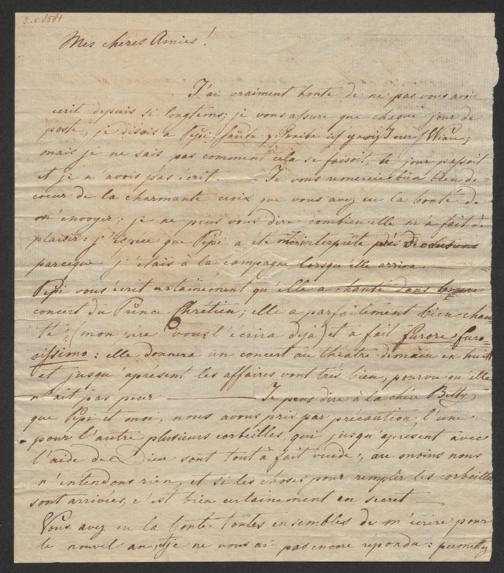 Mes chères Amies!
J'ai vraiment honte de ne pas vous avoir
écrit depuis si longtems; je vous assure que chaque jour de
poste, je disois a Pepi: heute schreibe ich gewiß nach Wien,
mais je ne sais pas comment cela se faisoit, le jour passoit
et je n'avois pas écrit — Je vous remercie bien de
coeur de la charmante croix que vous avez eu la bonté de
m'envoyer; je ne puis vous dire combien elle m'a fait de
plaisir: j'espère que Pepi a été mon interprète
parceque j'étais à la campagne lorsqu'elle arriva.
Pepi vous écrit certainement qu'elle a chanté dans
concert du Prince Chrétien; elle a parfaitement bien chan-
té, mon vous l'écrira déja et a fait furore furo-
rissimo: elle donnera un concert au théatre demain en huit
et jusqu'apresent les affaires vont très bien, pourvu qu'elle
n'ait pas peur — Je peus dire à la chere Betty
que Pepi et moi, nous avons pris par précaution, l'une
pour l'autre plusieurs corbeilles, qui jusqu'apresent avec
l'aide de Dieu sont tout à fait vuide, au moins nous
n'entendons rien, et si les choses pour remplir les corbeilles
sont arrivées, c'est bien certainement en secret
Vous avez eu la bonté toutes ensembles de m'écrire pour
le nouvel an, et je ne vous ai pas encore repondu: permettez